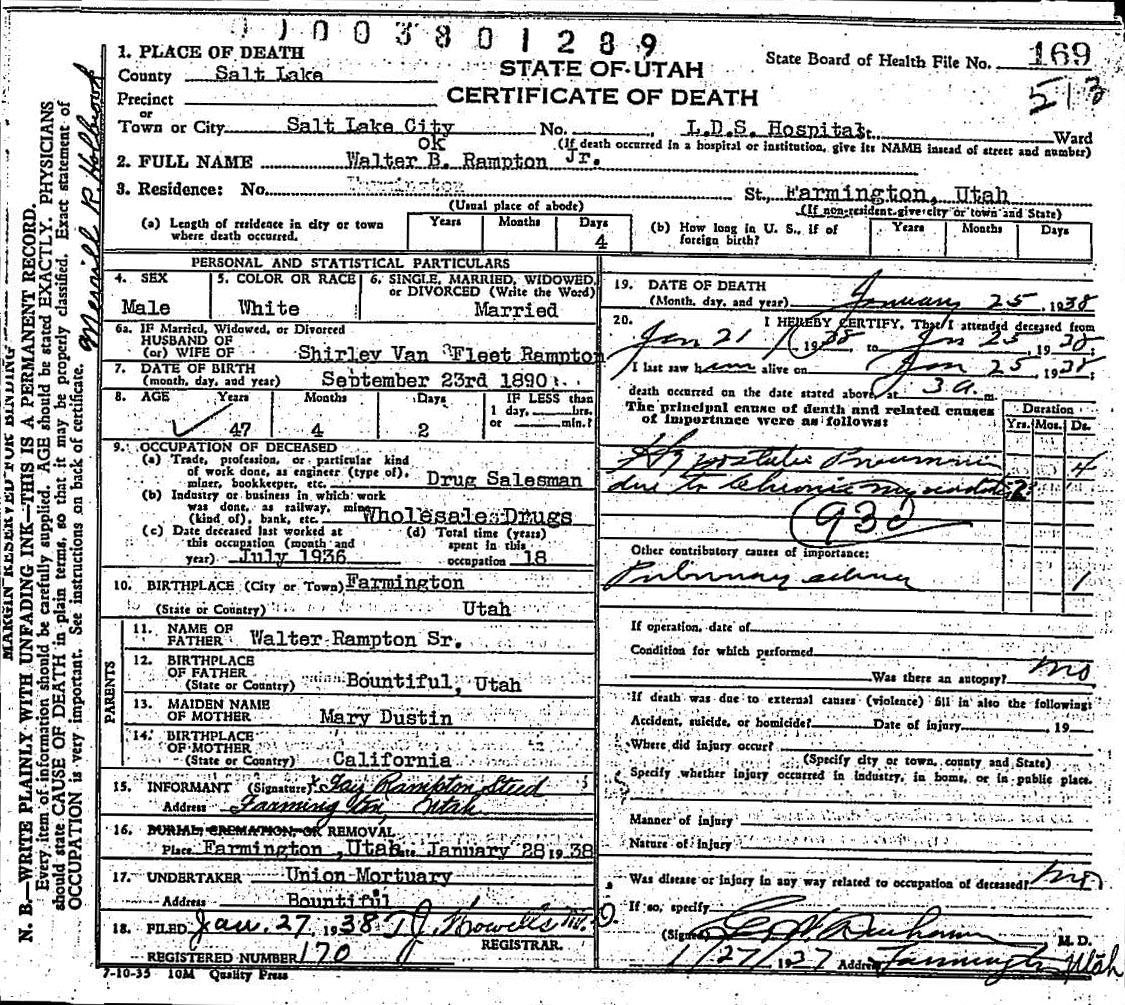 0 1 0 0 3 8 0 1 2 8 9
1. PLACE OF DEATH
County Salt Lake
STATE OF UTAH
State Board of Health File No. 169
513
Precinct
CERTIFICATE OF DEATH
or
Town or City Salt Lake City No. L.D.S. Hospital St. Ward
OK
(If death occurred in a hospital or institution, give its NAME instead of street and number)
2. FULL NAME Walter B. Rampton Jr.
3. Residence: No. Farmington St., Farmington, Utah
(Usual place of abode)
(If non-resident give city or town and State)
(a) Length of residence in city or town where death occurred. Years Months Days 4
(b) How long in U. S., if of foreign birth? Years Months Days
PERSONAL AND STATISTICAL PARTICULARS
4. SEX Male
5. COLOR OR RACE White
6. SINGLE, MARRIED, WIDOWED, or DIVORCED (Write the Word) Married
6a. IF Married, Widowed, or Divorced
HUSBAND OF
(or) WIFE OF Shirley Van Fleet Rampton
7. DATE OF BIRTH
(month, day, and year) September 23rd 1890
8. AGE Years 47 Months 4 Days 2
IF LESS than 1 day, hrs. or min.?
9. OCCUPATION OF DECEASED
(a) Trade, profession, or particular kind of work done, as engineer (type of), miner, bookkeeper, etc. Drug Salesman
(b) Industry or business in which work was done, as railway, mine (kind of), bank, etc. Wholesales Drugs
(c) Date deceased last worked at this occupation (month and year) July 1936
(d) Total time (years) spent in this occupation 18
10. BIRTHPLACE (City or Town) Farmington
(State or Country) Utah
PARENTS
11. NAME OF FATHER Walter Rampton Sr.
12. BIRTHPLACE OF FATHER
(State or Country) Bountiful, Utah
13. MAIDEN NAME OF MOTHER Mary Dustin
14. BIRTHPLACE OF MOTHER
(State or Country) California
15. INFORMANT (Signature) x Fay Rampton Steed
Address Farmington, Utah
16. BURIAL, CREMATION, OR REMOVAL
Place Farmington, Utah Date January 28 1938
17. UNDERTAKER Union Mortuary
Address Bountiful
18. FILED Jan. 27 1938 T J. Howells M.D.
REGISTRAR.
REGISTERED NUMBER 170
7-10-35 10M Quality Press
19. DATE OF DEATH
(Month, day, and year) January 25, 1938
20. I HEREBY CERTIFY, That I attended deceased from
Jan 21, 1938 to Jan 25, 1938
I last saw him alive on Jan 25, 1938
death occurred on the date stated above, at 3 a. m.
The principal cause of death and related causes of importance were as follows:
Duration
Yrs. Mos. Ds.
Hypostatic Pneumonia 4
due to Chronic myocarditis 2
93d
Other contributory causes of importance:
Pulmonary edema 1
If operation, date of
Condition for which performed
Was there an autopsy? no
If death was due to external causes (violence) fill in also the following:
Accident, suicide, or homicide? Date of injury 19
Where did injury occur?
(Specify city or town, county and State)
Specify whether injury occurred in industry, in home, or in public place.
Manner of injury
Nature of injury
Was disease or injury in any way related to occupation of deceased? no
If so, specify
(Signed) M. D.
1/27/1937 Address Farmington Utah
MARGIN RESERVED FOR BINDING
N. B.—WRITE PLAINLY WITH UNFADING INK—THIS IS A PERMANENT RECORD.
Every item of information should be carefully supplied. AGE should be stated EXACTLY. PHYSICIANS
should state CAUSE OF DEATH in plain terms, so that it may be properly classified. Exact statement of
OCCUPATION is very important. See instructions on back of certificate.
Merrill R. Holbrook